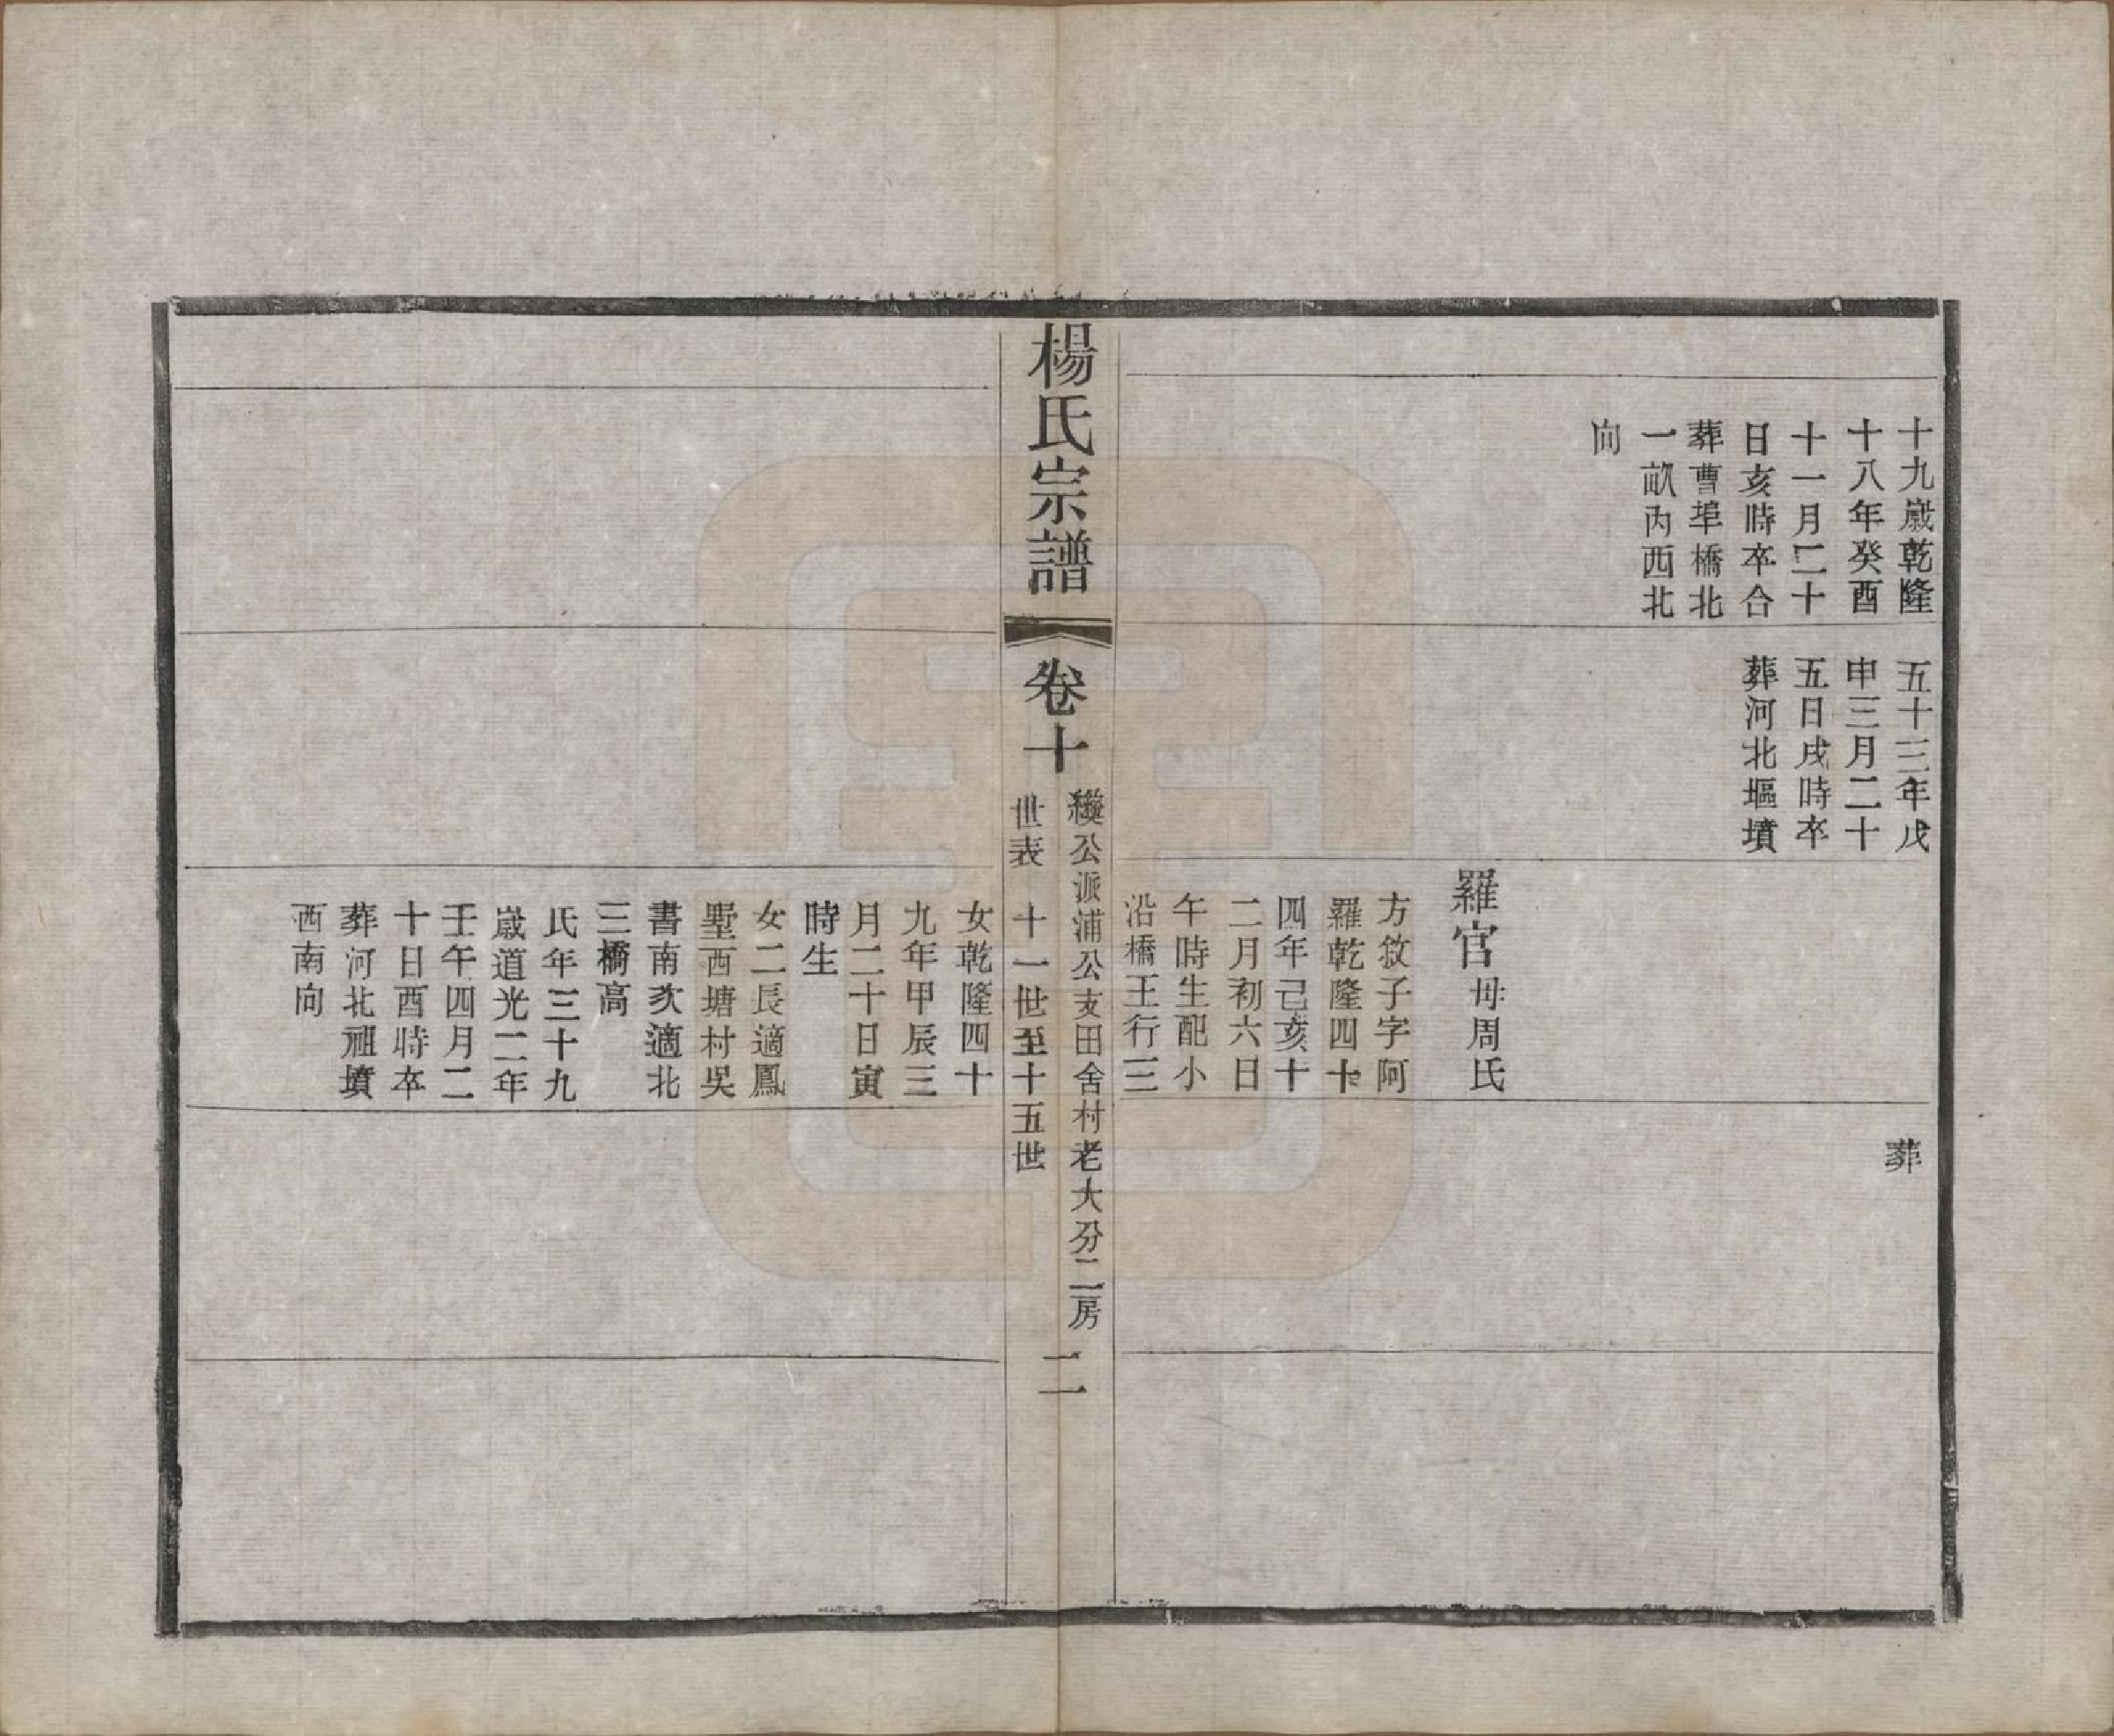 十九嵗乾隆
十八年癸酉
十一月二十
日亥時卒合
葬曹埠橋北
一畝內西北
向
五十三年戊
申三月二十
五日戌時卒
葬河北堰墳
羅官母周氏
方敘子字阿
羅乾隆四十
四年己亥十
二月初六日
午時生配小
沿橋王行三
葬
楊氏宗譜
卷十
公派浦公支田舍村老大分二房
世表 十一世至十五世
二
女乾隆四十
九年甲辰三
月二十日寅
時生
女二長適鳳
墅西塘村吳
書南次適北
三橋高
氏年三十九
嵗道光二年
壬午四月二
十日酉時卒
葬河北祖墳
西南向